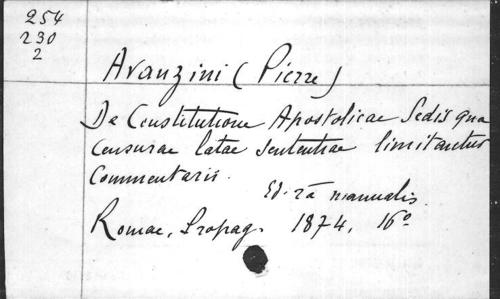 254
230
2
Avanzini (Pierre)
De Constitutione Apostolicae Sedis qua
censurae latae sententiae limitantur
Commentarii.
Ed. 2a manualis
Romae, Propag. 1874, 16º